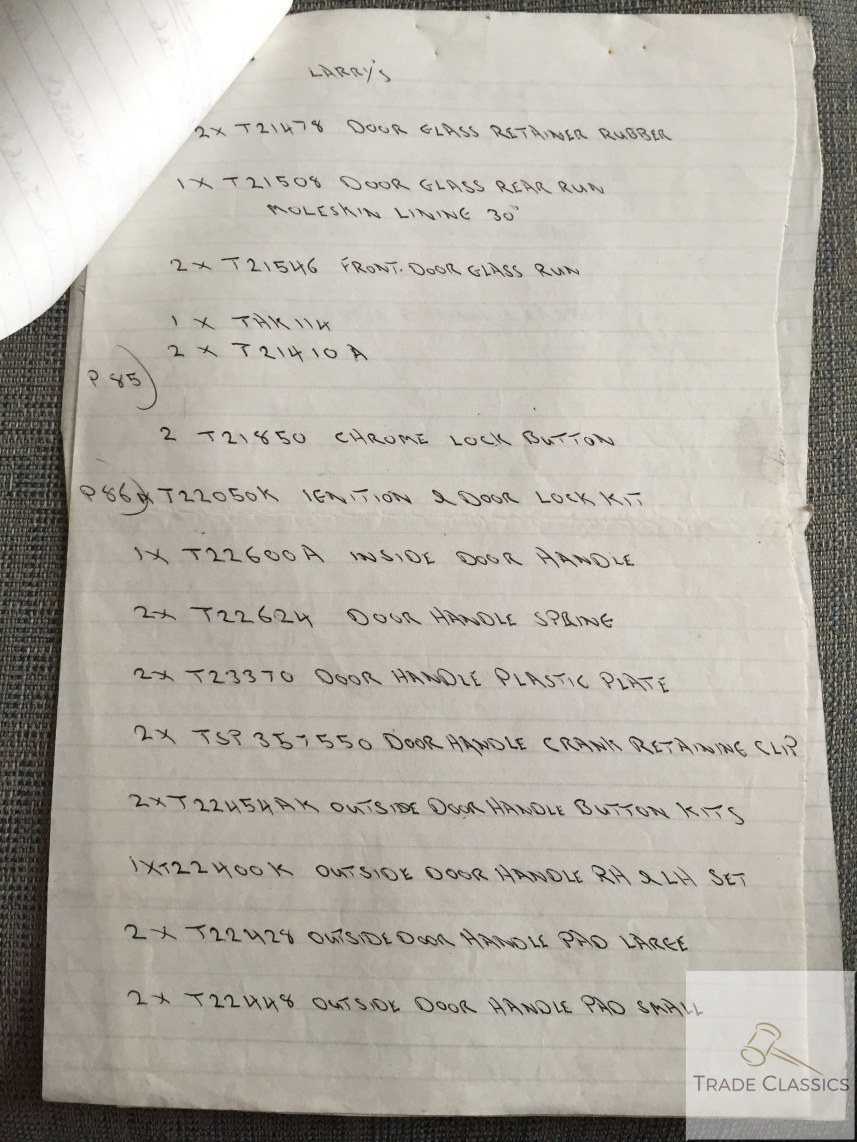 LARRY'S
2X T21478 DOOR GLASS RETAINER RUBBER
1X T21508 DOOR GLASS REAR RUN
MOLESKIN LINING 30"
2X T21546 FRONT. DOOR GLASS RUN
1 X THK114
2 X T21410A
P85)
2 T21850 CHROME LOCK BUTTON
P86) T22050K IGNITION & DOOR LOCK KIT
1X T22600A INSIDE DOOR HANDLE
2X T22624 DOOR HANDLE SPRING
2X T23370 DOOR HANDLE PLASTIC PLATE
2X TSP357550 DOOR HANDLE CRANK RETAINING CLIP
2X T22454AK OUTSIDE DOOR HANDLE BUTTON KITS
1X T22400K OUTSIDE DOOR HANDLE RH & LH SET
2X T22428 OUTSIDE DOOR HANDLE PAD LARGE
2X T22448 OUTSIDE DOOR HANDLE PAD SMALL
TRADE CLASSICS